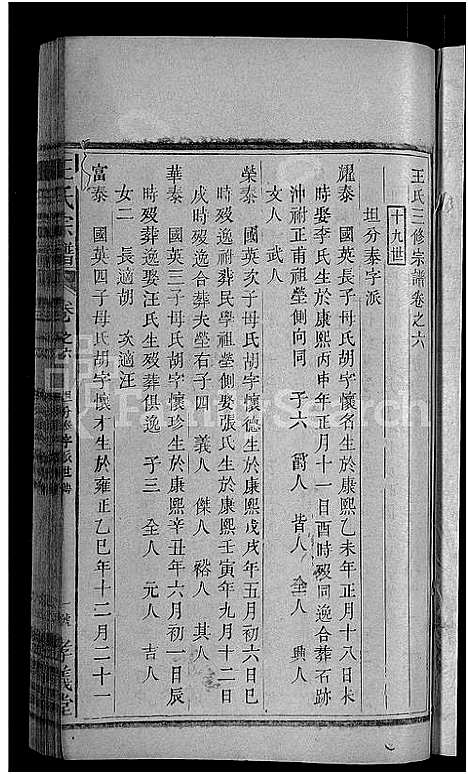 王氏三修宗譜卷之六
十九世
坦分泰字派
耀泰 國英長子母氏胡字懷名生於康熙乙未年正月十八日未
時娶李氏生於康熙丙申年正月十一日酉時歿同逸合葬石跡
沖祔正甫祖塋側向同 子六 爵人 皆人 全人 興人
文人 武人
榮泰 國英次子母氏胡字懷德生於康熙戊戌年五月初六日巳
時歿逸祔葬民學祖塋側娶張氏生於康熙壬寅年九月十二日
戌時歿合葬夫塋右子四 義人 傑人 裕人 其人
華泰 國英三子母氏胡字懷珍生於康熙辛丑年六月初一日辰
時歿葬逸娶汪氏生歿葬俱逸 子三 全人 元人 吉人
女二 長適胡 次適汪
富泰 國英四子母氏胡字懷才生於雍正乙巳年十二月二十一
王氏宗譜 卷之六 坦分泰字派世 一 孝義堂
FamilySearch